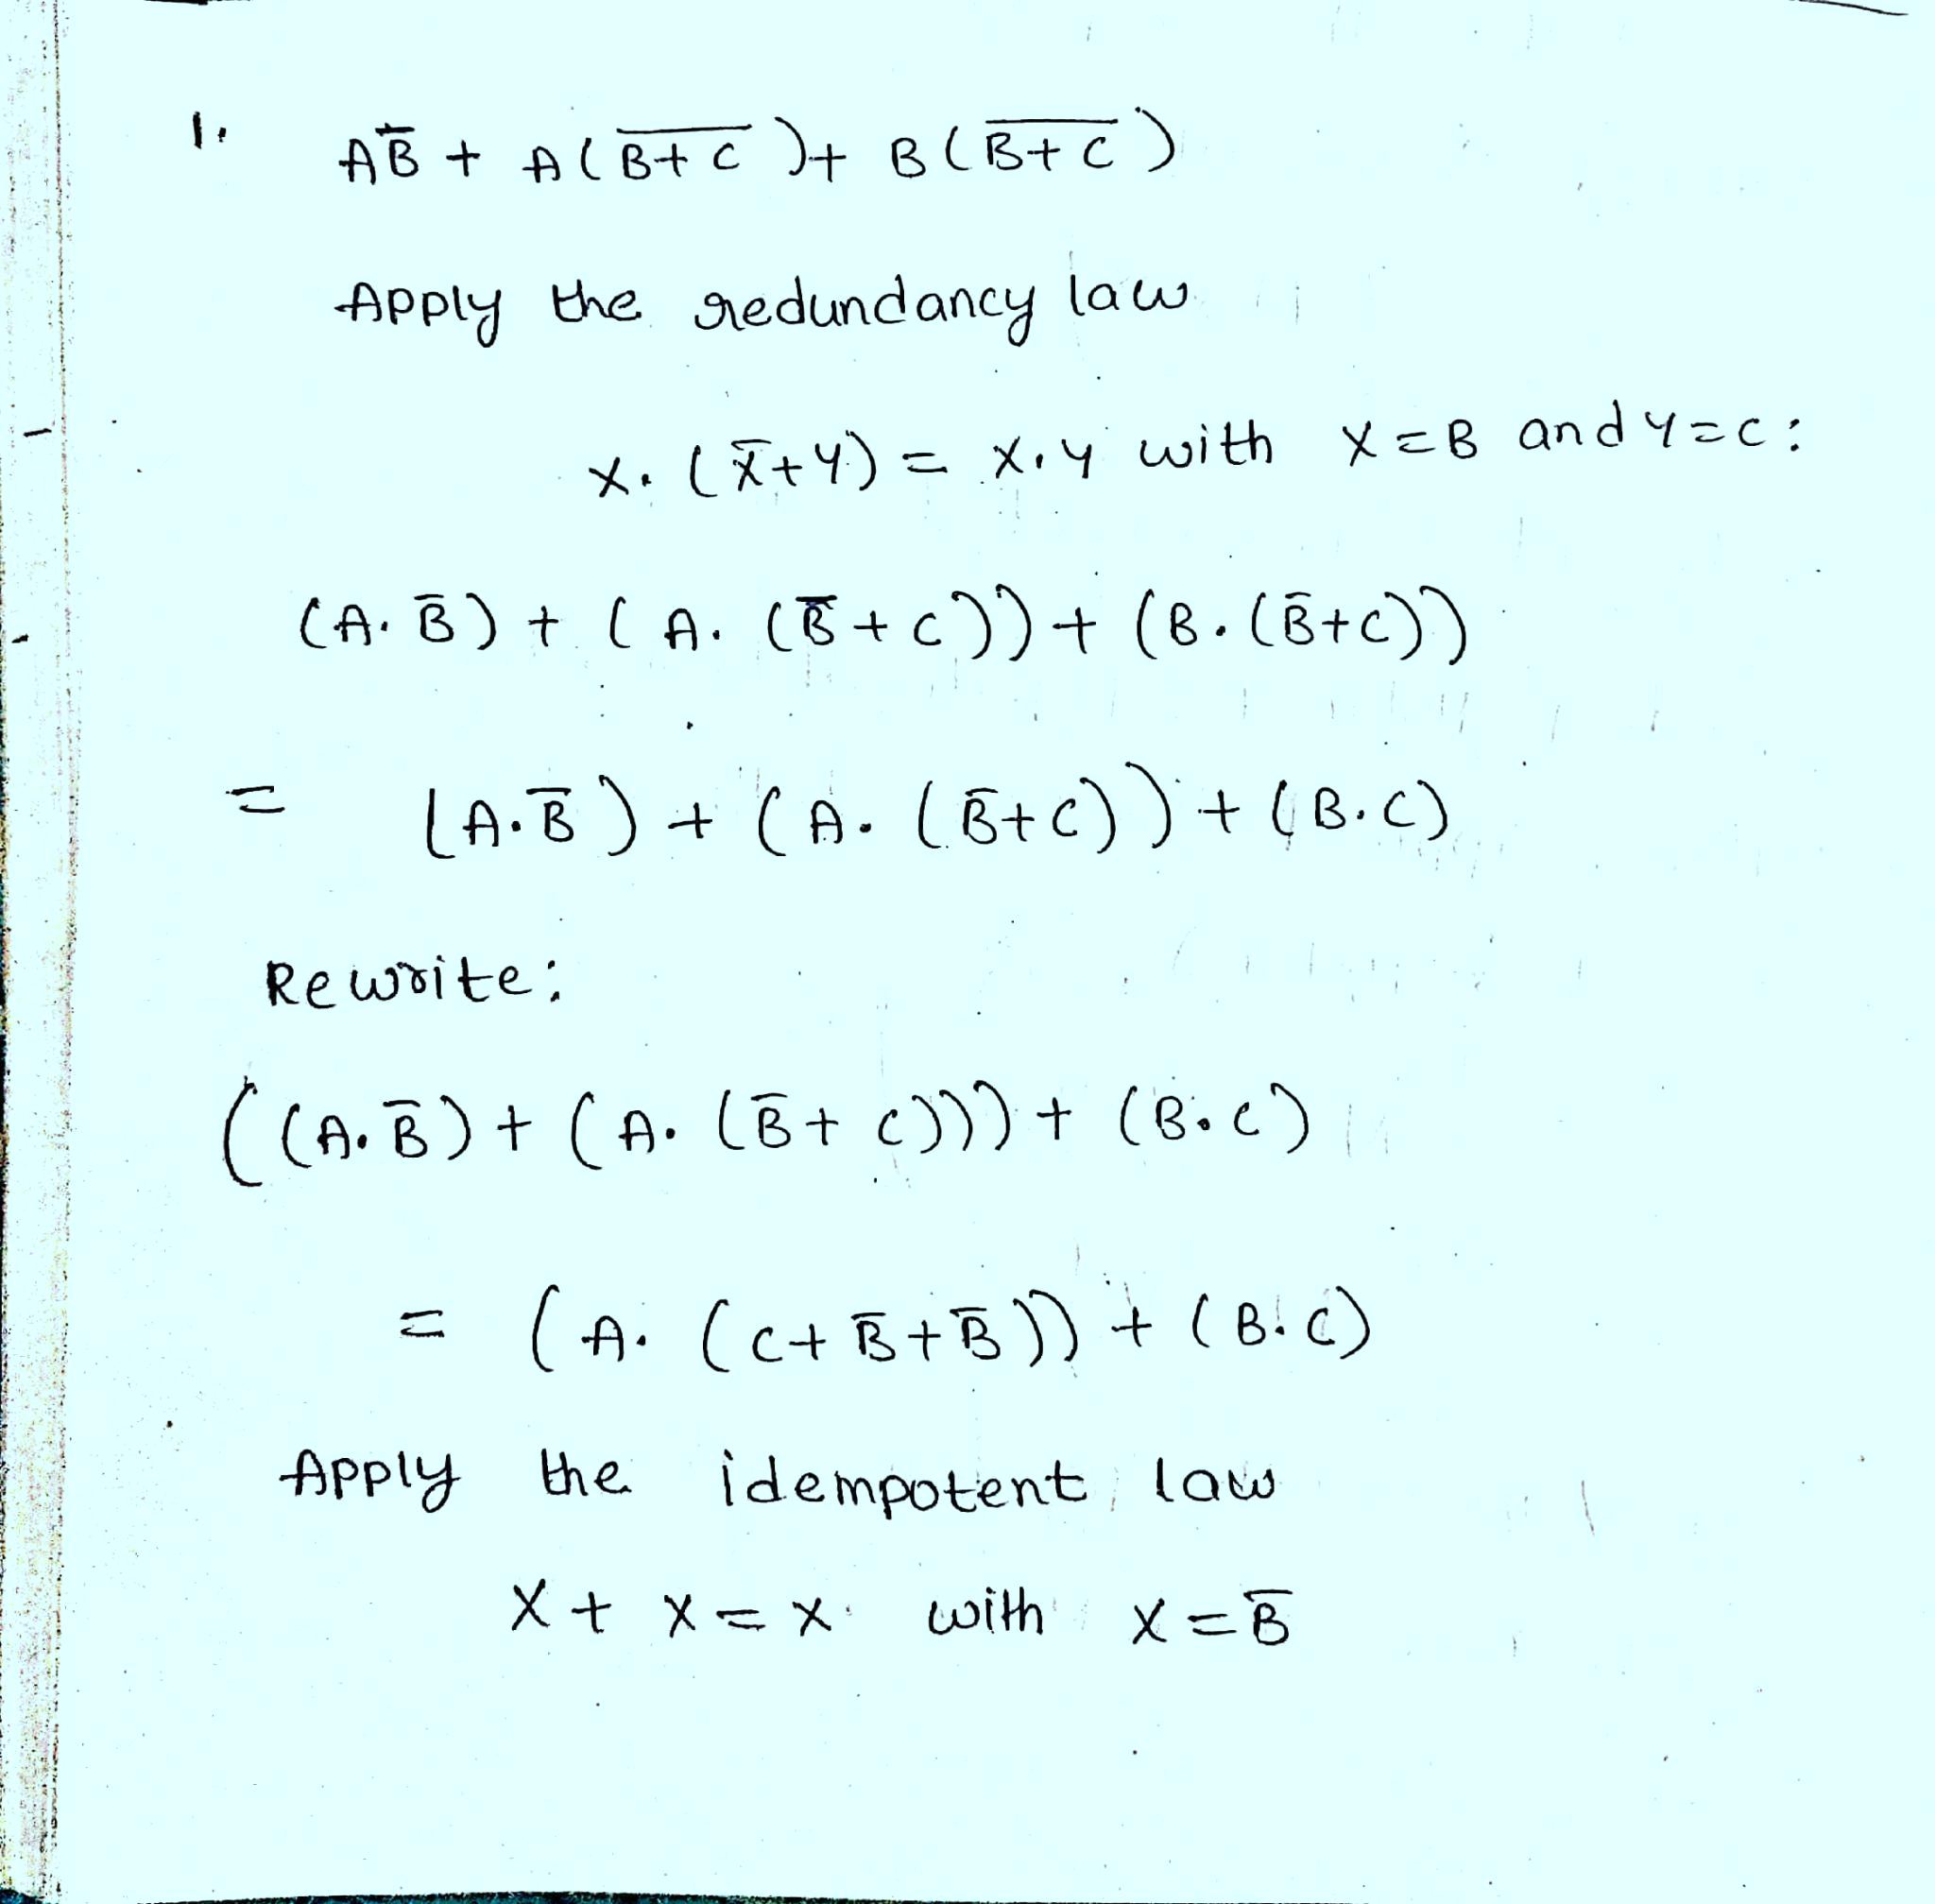 1. AB̅ + A(B̅+̅C̅)+ B(B̅+̅C̅)
Apply the redundancy law
X. (X̅+Y) = X.Y with X=B and Y=C:
(A. B̅) + (A. (B̅+C)) + (B.(B̅+C))
= (A.B̅) + (A. (B̅+C)) + (B.C)
Rewrite:
((A.B̅) + (A. (B̅+ C))) + (B.C)
= (A. (C+B̅+B̅)) + (B.C)
Apply the idempotent law
X+ X=X with X=B̅